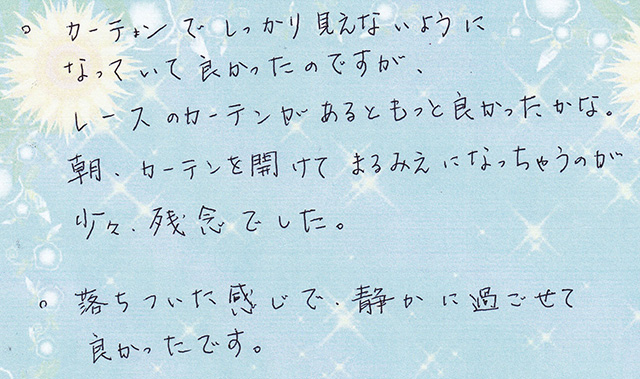 ○ カーテンでしっかり見えないように
なっていて良かったのですが、
レースのカーテンがあるともっと良かったかな。
朝、カーテンを開けてまるみえになっちゃうのが
少々、残念でした。
○ 落ちついた感じで、静かに過ごせて
良かったです。